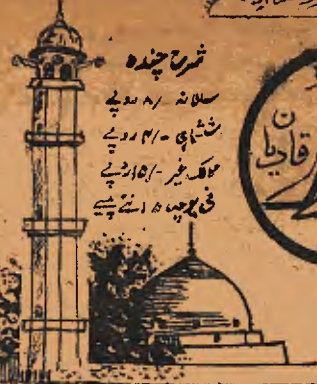 شرح چندہ
سالانہ ۸/- روپے
ششماہی ۴/- روپے
ممالک غیر ۱۵/- روپے
فی پرچہ ۱۵ نئے پیسے
قادیان